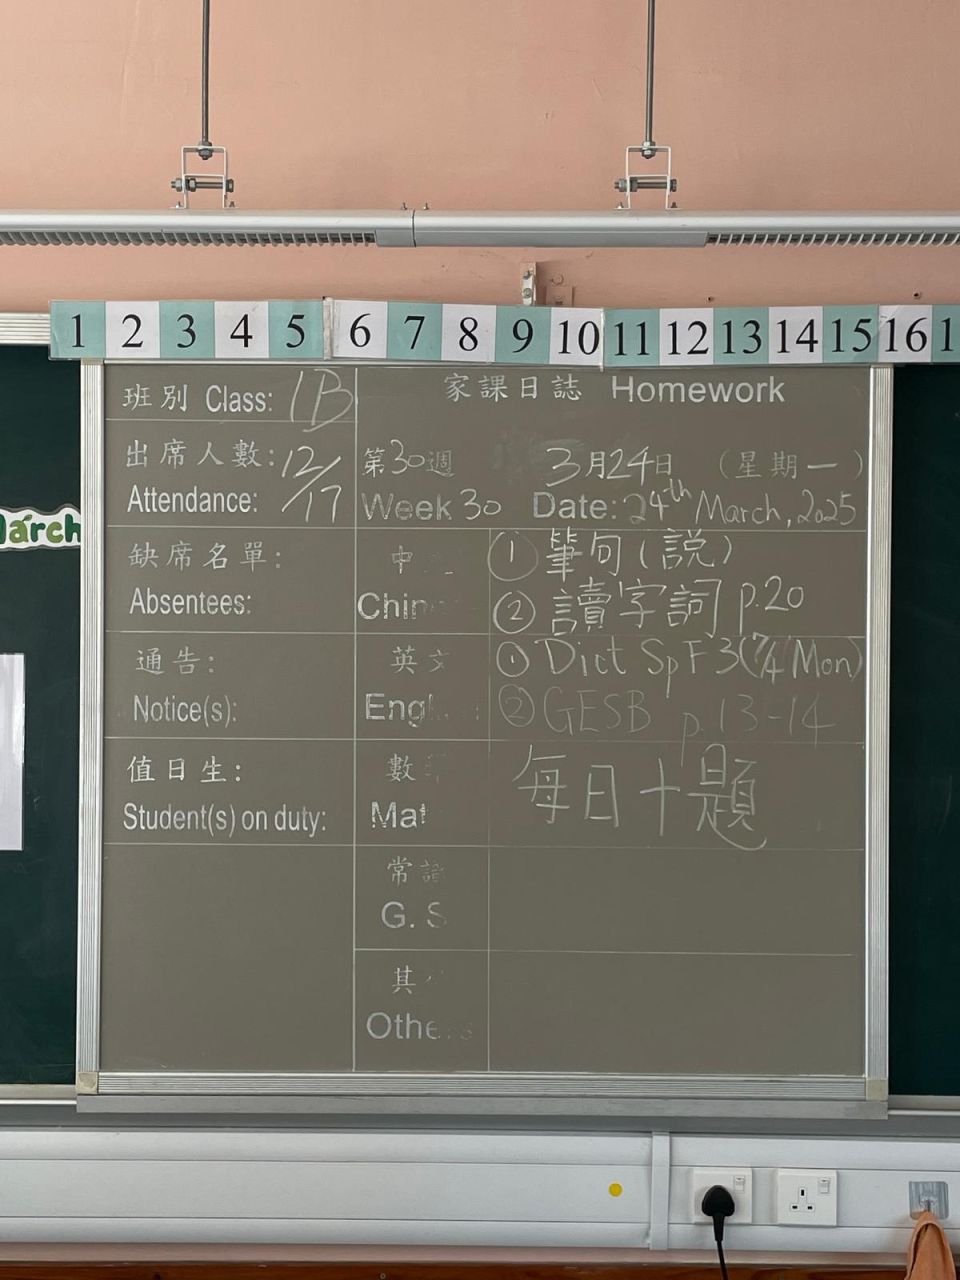 1 2 3 4 5 6 7 8 9 10 11 12 13 14 15 16 1
March
班別 Class: 1B
出席人數: 12/17
Attendance:
缺席名單:
Absentees:
通告:
Notice(s):
值日生:
Student(s) on duty:
家課日誌 Homework
第30週 3月24日 (星期一)
Week 30 Date: 24th March, 2025
中
Chin
① 筆句(説)
② 讀字詞 p.20
英文
Engl
① Dict Sp F3 (7/4 Mon)
② GESB p.13-14
數
Mat
每日十題
常識
G. S
其
Others